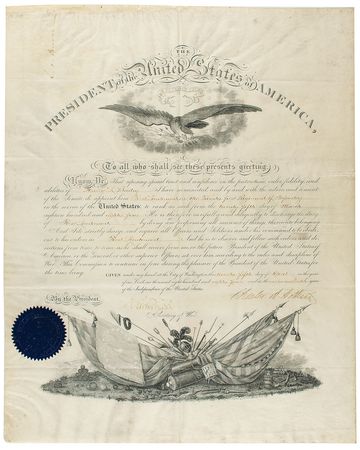 THE
PRESIDENT of the United States of AMERICA,
To all who shall see these presents greeting:
Know Ye, That reposing special trust and confidence in the patriotism, valor, fidelity, and
abilities of I have nominated, and by and with the advice and consent
of the Senate do appoint him in the Twenty first Regiment of Infantry
in the service of the United States: to rank as such from the day of March
eighteen hundred and eighty four. He is therefore carefully and diligently to discharge the duty
of by doing and performing all manner of things thereunto belonging.
And I do strictly charge and require all Officers and Soldiers under his command to be obedi-
ent to his orders as And he is to observe and follow such orders and di-
rections from time to time, as he shall receive from me, or the future President of the United States of
America, or the General or other superior Officers set over him, according to the rules and discipline of
War. This Commission to continue in force during the pleasure of the President of the United States for
the time being.
GIVEN under my hand at the City of Washington this day of April in the year
of our Lord one thousand eight hundred and eighty four and in the one hundred and eighth year
of the Independence of the United States.
By the President,
Chester A. Arthur
Secretary of War.